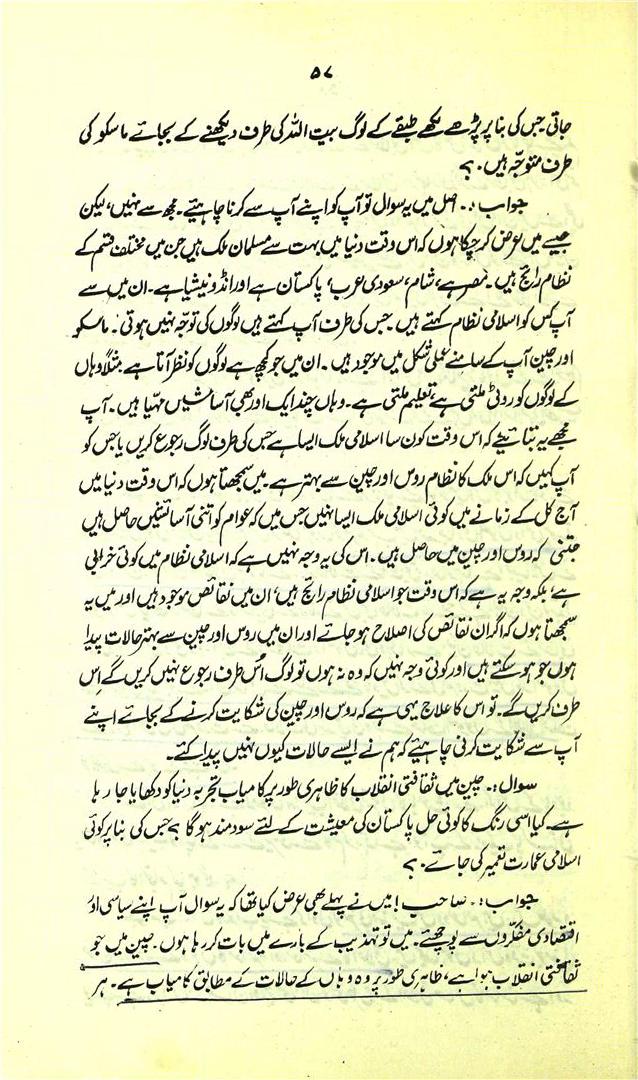 ۵۷
جاتی جس کی بنا پر پڑھے لکھے طبقے کے لوگ بیت اللہ کی طرف دیکھنے کے بجائے ماسکو کی
طرف متوجّہ ہیں۔ ؟
جواب :۔ اصل میں یہ سوال تو آپ کو اپنے آپ سے کرنا چاہئیے۔ مجھ سے نہیں، لیکن
جیسے میں عرض کر چکا ہوں کہ اس وقت دنیا میں بہت سے مسلمان ملک ہیں جن میں مختلف قسم کے
نظام رائج ہیں۔ مصر ہے، شام، سعودی عرب، پاکستان ہے اور انڈونیشیا ہے۔ ان میں سے
آپ کس کو اسلامی نظام کہتے ہیں۔ جس کی طرف آپ کہتے ہیں لوگوں کی توجّہ نہیں ہوتی۔ ماسکو
اور چین آپ کے سامنے عملی شکل میں موجود ہیں۔ ان میں جو کچھ ہے لوگوں کو نظر آتا ہے مثلاً وہاں
کے لوگوں کو روٹی ملتی ہے تعلیم ملتی ہے۔ وہاں چند ایک اور بھی آسائشیں مہیّا ہیں۔ آپ
مجھے یہ بتائیے کہ اس وقت کون سا اسلامی ملک ایسا ہے جس کی طرف لوگ رجوع کریں یا جس کو
آپ کہیں کہ اس ملک کا نظام روس اور چین سے بہتر ہے۔ میں سمجھتا ہوں کہ اس وقت دنیا میں
آج کل کے زمانے میں کوئی اسلامی ملک ایسا نہیں جس میں کہ عوام کو اتنی آسائشیں حاصل ہیں
جتنی کہ روس اور چین میں حاصل ہیں۔ اس کی یہ وجہ نہیں ہے کہ اسلامی نظام میں کوئی خرابی
ہے، بلکہ وجہ یہ ہے کہ اس وقت جو اسلامی نظام رائج ہیں، ان میں نقائص موجود ہیں اور میں یہ
سمجھتا ہوں کہ اگر ان نقائص کی اصلاح ہو جائے اور ان میں روس اور چین سے بہتر حالات پیدا
ہوں جو ہو سکتے ہیں اور کوئی وجہ نہیں کہ وہ نہ ہوں تو لوگ اُس طرف رجوع نہیں کریں گے اِس
طرف کریں گے۔ تو اس کا علاج یہی ہے کہ روس اور چین کی شکایت کرنے کے بجائے اپنے
آپ سے شکایت کرنی چاہئیے کہ ہم نے ایسے حالات کیوں نہیں پیدا کئے۔
سوال :۔ چین میں ثقافتی انقلاب کا ظاہری طور پر کامیاب تجربہ دنیا کو دکھایا جا رہا
ہے۔ کیا اسی رنگ کا کوئی حل پاکستان کی معیشت کے لئے سودمند ہوگا ؟ جس کی بنا پر کوئی
اسلامی عمارت تعمیر کی جائے۔ ؟
جواب :۔ صاحب! میں نے پہلے بھی عرض کیا تھا کہ یہ سوال آپ اپنے سیاسی اور
اقتصادی مفکّروں سے پوچھئے۔ میں تو تہذیب کے بارے میں بات کر رہا ہوں۔ چین میں جو
ثقافتی انقلاب ہوا ہے، ظاہری طور پر وہ وہاں کے حالات کے مطابق کامیاب ہے۔ ہر